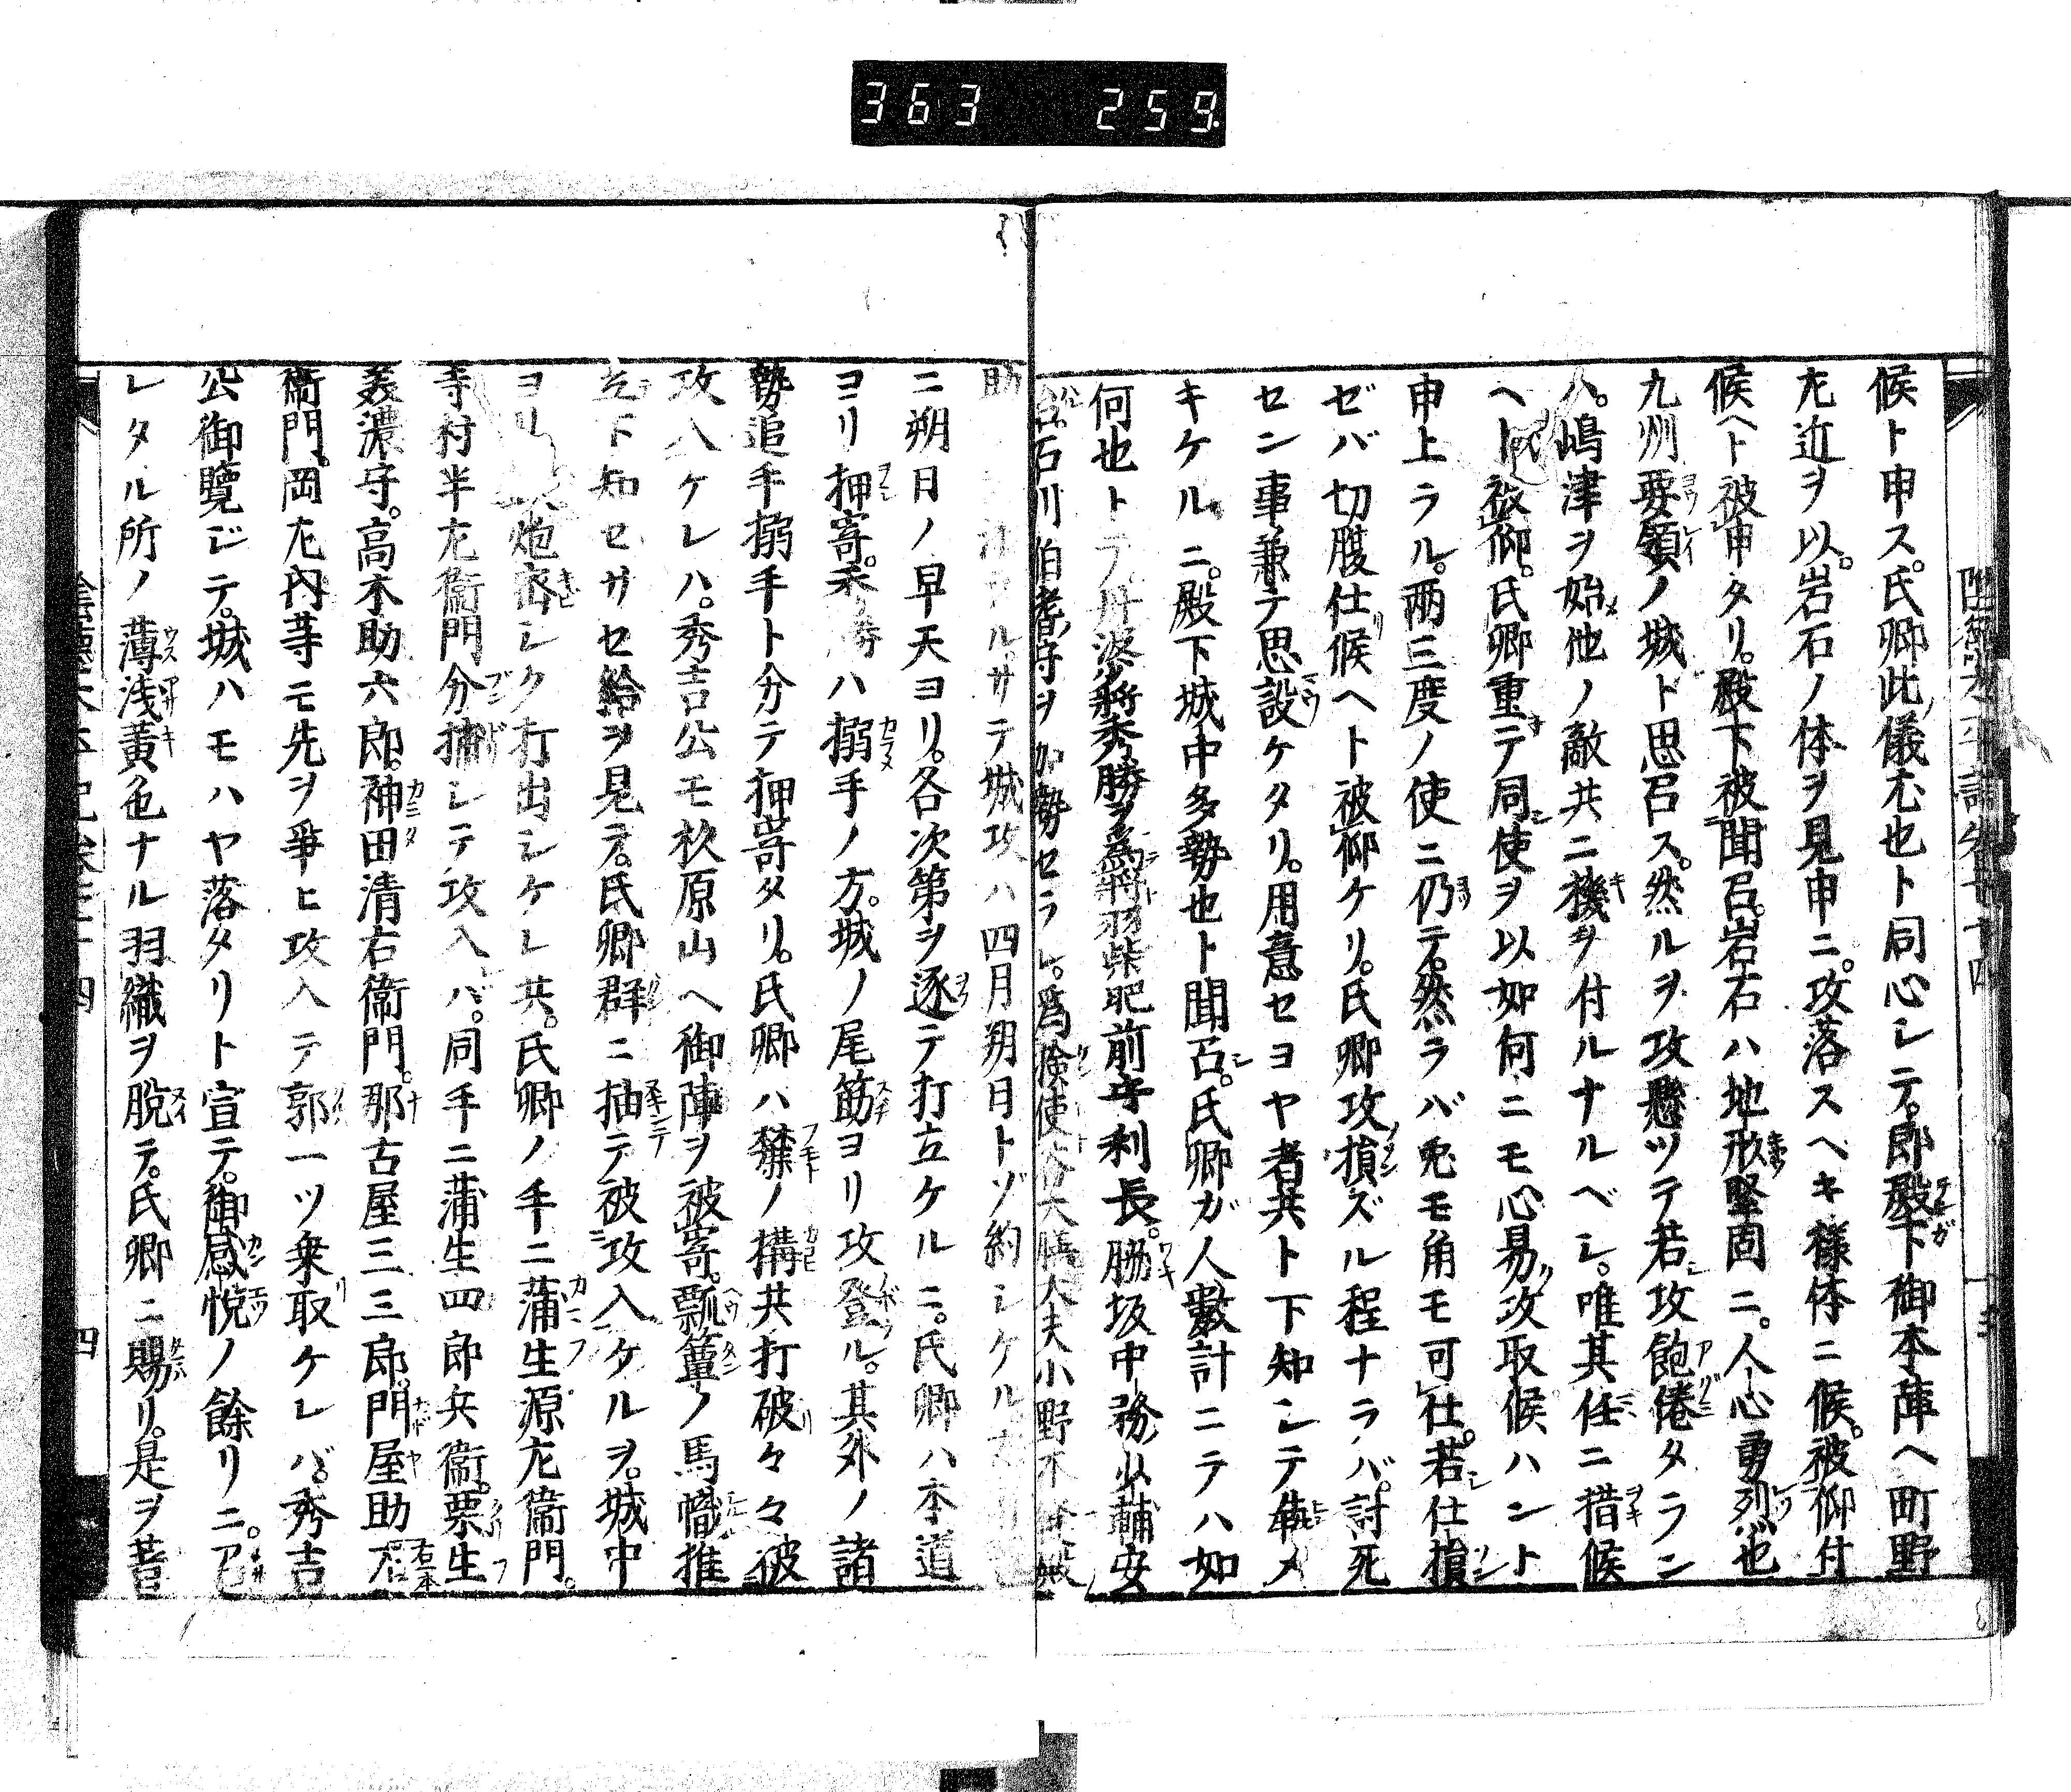 363 259
候ト申ス。氏卿此儀尤也ト同心シテ。即殿下御本陣ヘ町野
左近ヲ以。岩石ノ体ヲ見申ニ。攻落スヘキ様体ニ候。被仰付
候ヘト被申タリ。殿下被聞召。岩石ハ地形堅固ニ。人心勇烈也
九州要領ノ城ト思召ス。然ルヲ攻懸ツテ若攻飽倦タラン
ハ。嶋津ヲ始他ノ敵共ニ機ヲ付ルナルベシ。唯其任ニ措候
ヘト被仰。氏卿重テ同使ヲ以如何ニモ心易攻取候ハント
申上ラル。両三度ノ使ニ仍テ。然ラバ兎モ角モ可仕。若仕損
ゼバ切腹仕候ヘト被仰ケリ。氏卿攻損ズル程ナラバ。討死
セン事兼テ思設ケタリ。用意セヨヤ者共ト下知シテ犇メ
キケルニ。殿下城中多勢也ト聞召。氏卿ガ人数計ニテハ如
何也トテ。丹波少将秀勝ヲ為将羽柴肥前守利長。脇坂中務少輔安
石川伯耆守ヲ加勢セラレ。為検使大膳大夫小野木
助サテ城攻ハ四月朔日トゾ約シケル
ニ朔日ノ早天ヨリ。各次第ヲ逐テ打立ケルニ。氏卿ハ本道
ヨリ押寄。秀勝ハ搦手ノ方。城ノ尾筋ヨリ攻登ル。其外ノ諸
勢追手搦手ト分テ押寄タリ。氏卿ハ麓ノ構共打破々々被
攻入ケレハ。秀吉公モ杉原山ヘ御陣ヲ被寄。瓢箪ノ馬幟推
立下知セサセ給ヲ見テ。氏卿群ニ抽テ被攻入ケルヲ。城中
ヨリ炮密シク打出シケレ共。氏卿ノ手ニ蒲生源左衛門。
寺村半左衛門分捕シテ攻入バ。同手ニ蒲生四郎兵衛。栗生
美濃守。高木助六郎。神田清右衛門。那古屋三三郎。門屋助右
衛門。岡左内等モ先ヲ争ヒ攻入テ郭一ツ乗取ケレバ。秀吉
公御覧ジテ。城ハモハヤ落タリト宣テ。御感悦ノ餘リニ。召
レタル所ノ薄浅黄色ナル羽織ヲ脱テ。氏卿ニ賜リ。是ヲ著
四